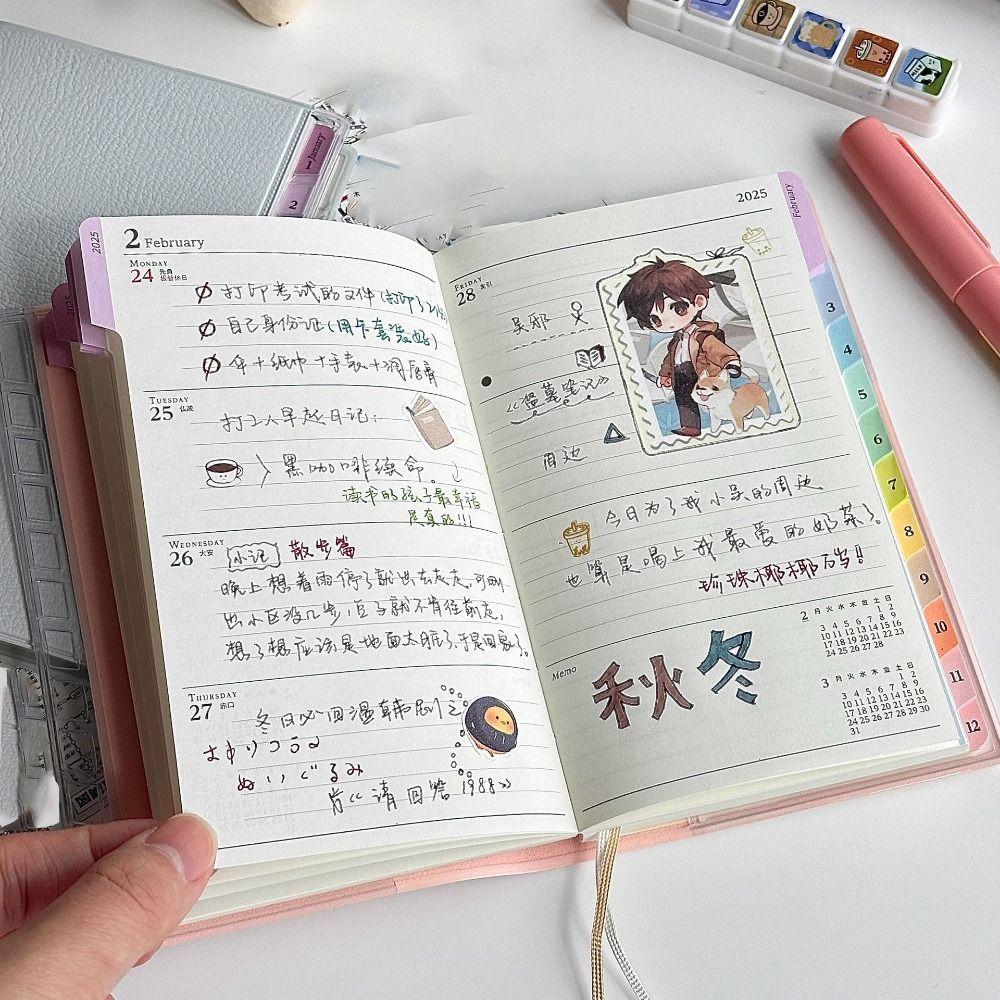 1 January
2
MILK
2025
2 February
MONDAY
24 先負
振替休日
打印考试的文件(打印了2份
自己身份证(用卡套装好)
伞+纸巾+手表+润唇膏
TUESDAY
25 仏滅
打工人早起日记:
黑咖啡续命。
读书的孩子最幸福
是真的!!!
WEDNESDAY
26 大安
小记 散步篇
晚上想着雨停了就出去走走,可刚
出小区没几步,豆子就不肯往前走,
想了想应该是地面太脏了,于是回家了。
THURSDAY
27 赤口
冬日必回温韩剧之
ぬいぐるみ
首《请回答1988》
2025
February
FRIDAY
28 友引
吴邪
《盗墓笔记》
周边
今日为了我小吴的周边
也算是喝上我最爱的奶茶了。
珍珠椰椰万岁!!
Memo
秋冬
2 月 火 水 木 金 土 日
1 2
3 4 5 6 7 8 9
10 11 12 13 14 15 16
17 18 19 20 21 22 23
24 25 26 27 28
3 月 火 水 木 金 土 日
1 2
3 4 5 6 7 8 9
10 11 12 13 14 15 16
17 18 19 20 21 22 23
24 25 26 27 28 29 30
31
3
4
5
6
7
8
9
10
11
12